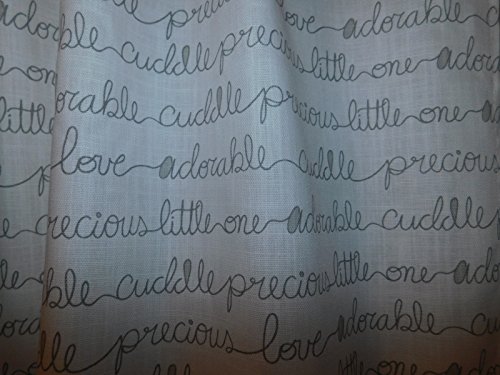 love adorable
cuddle precious little one adorable
one adorable cuddle
little adorable cuddle precious little one
love adorable cuddle precious
precious little one adorable cuddle
cuddle precious little one
cuddle precious love adorable
adorable